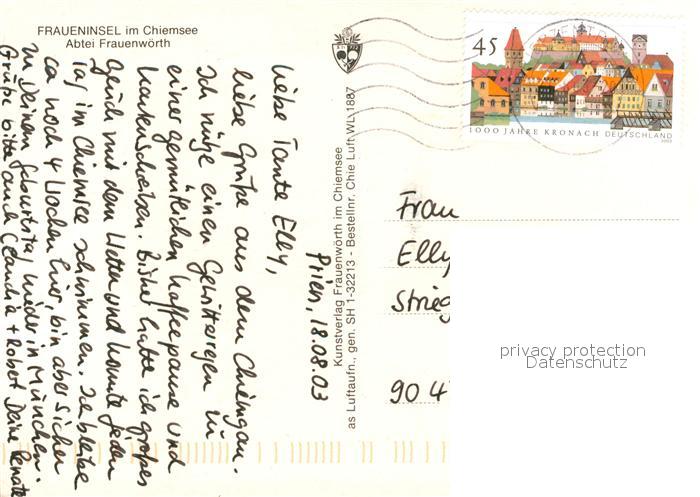 FRAUENINSEL im Chiemsee
Abtei Frauenwörth
Prien, 18.08.03
Liebe Tante Elly,
liebe Grüße aus dem Chiemgau.
Ich nütze einen Gewitterregen zu
einer gemütlichen Kaffeepause und
Kartenschreiben. Bisher hatte ich großes
Glück mit dem Wetter und konnte jeden
Tag im Chiemsee schwimmen. Ich bleibe
ca noch 4 Wochen hier, bin aber sicher
zu Deinem Geburtstag wieder in München.
Grüße bitte auch Claudia + Robert Deine Renate
Kunstverlag Frauenwörth im Chiemsee
as Luftaufn., gen. SH 1-32213 - Bestellnr. Chie Luft WL 1887
45
1000 JAHRE KRONACH DEUTSCHLAND
2003
Frau
Elly
Strieg
90 4
privacy protection
Datenschutz